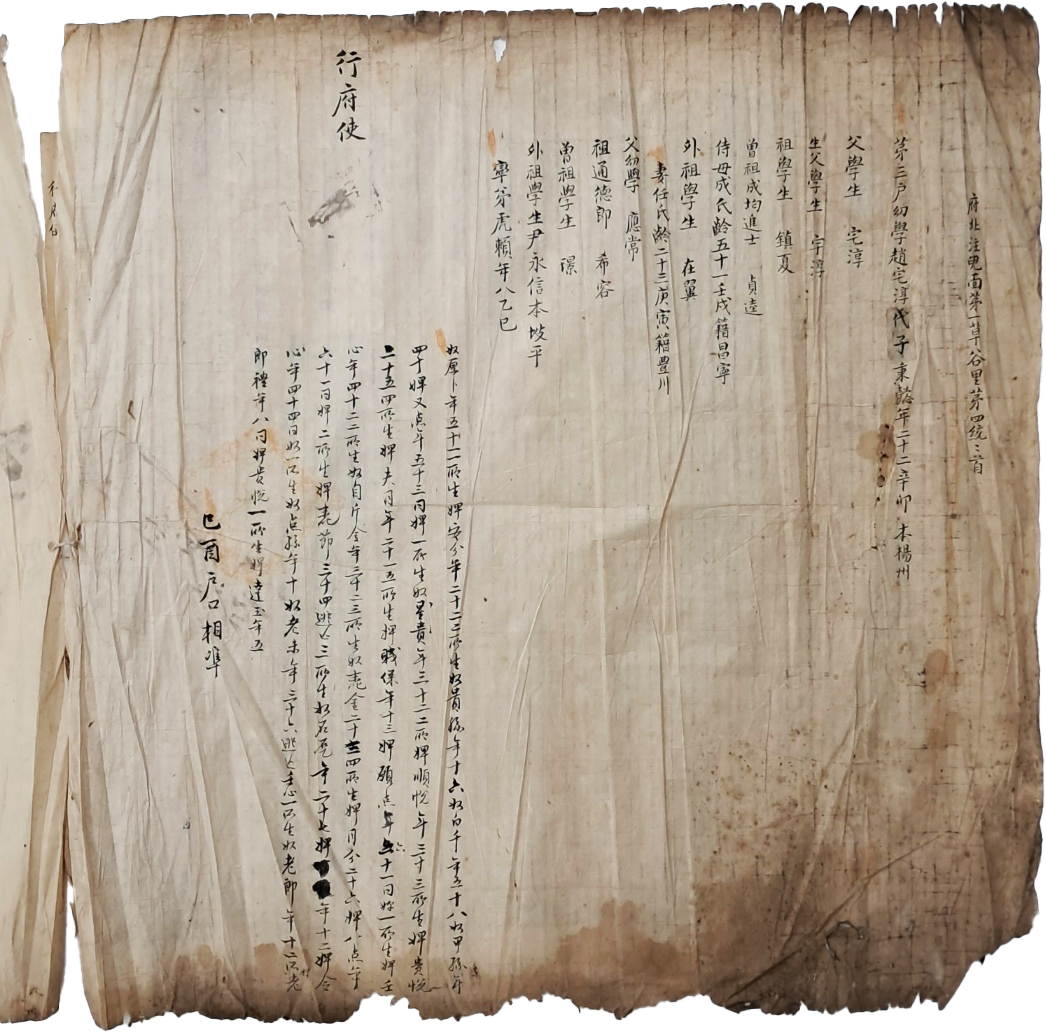 府北注兒面第一草谷里第四統三首
第三戶幼學趙宅淳代子秉懿年二十二辛卯本楊州
父學生 宅淳
生父學生 宇淳
祖學生 鎮夏
曾祖成均進士 貞逵
侍母成氏齡五十一壬戌籍昌寧
外祖學生 在翼
妻任氏齡二十三庚寅籍豊川
父幼學 應常
祖通德郎 希容
曾祖學生 璟
外祖學生尹永信本坡平
率弟虎賴年八乙巳
奴厚卜年五十一一所生婢安分年二十二二所生奴貴孫年十六奴白千年五十八奴甲孫年
四十婢又点年五十三同婢一所生奴星貴年三十二二所婢順悅年三十三所生婢貴悅
二十五四所生婢夫月年二十一五所生婢賤保年十三婢顔点年六十一同婢一所生婢壬
心年四十二二所生奴自斤金年三十二三所生奴憃金二十三四所生婢月分二十六婢八点年
六十一同婢二所生婢憃節三十四逃亡三所生奴石毛年二十七婢 年十二婢今
心年四十四同奴一所生奴点孫年十奴老未年三十六逃亡壬心一所生奴老郎年十二所老
郎禮年八同婢貴悅一所生婢達玉年五
己酉戶口相準
行府使